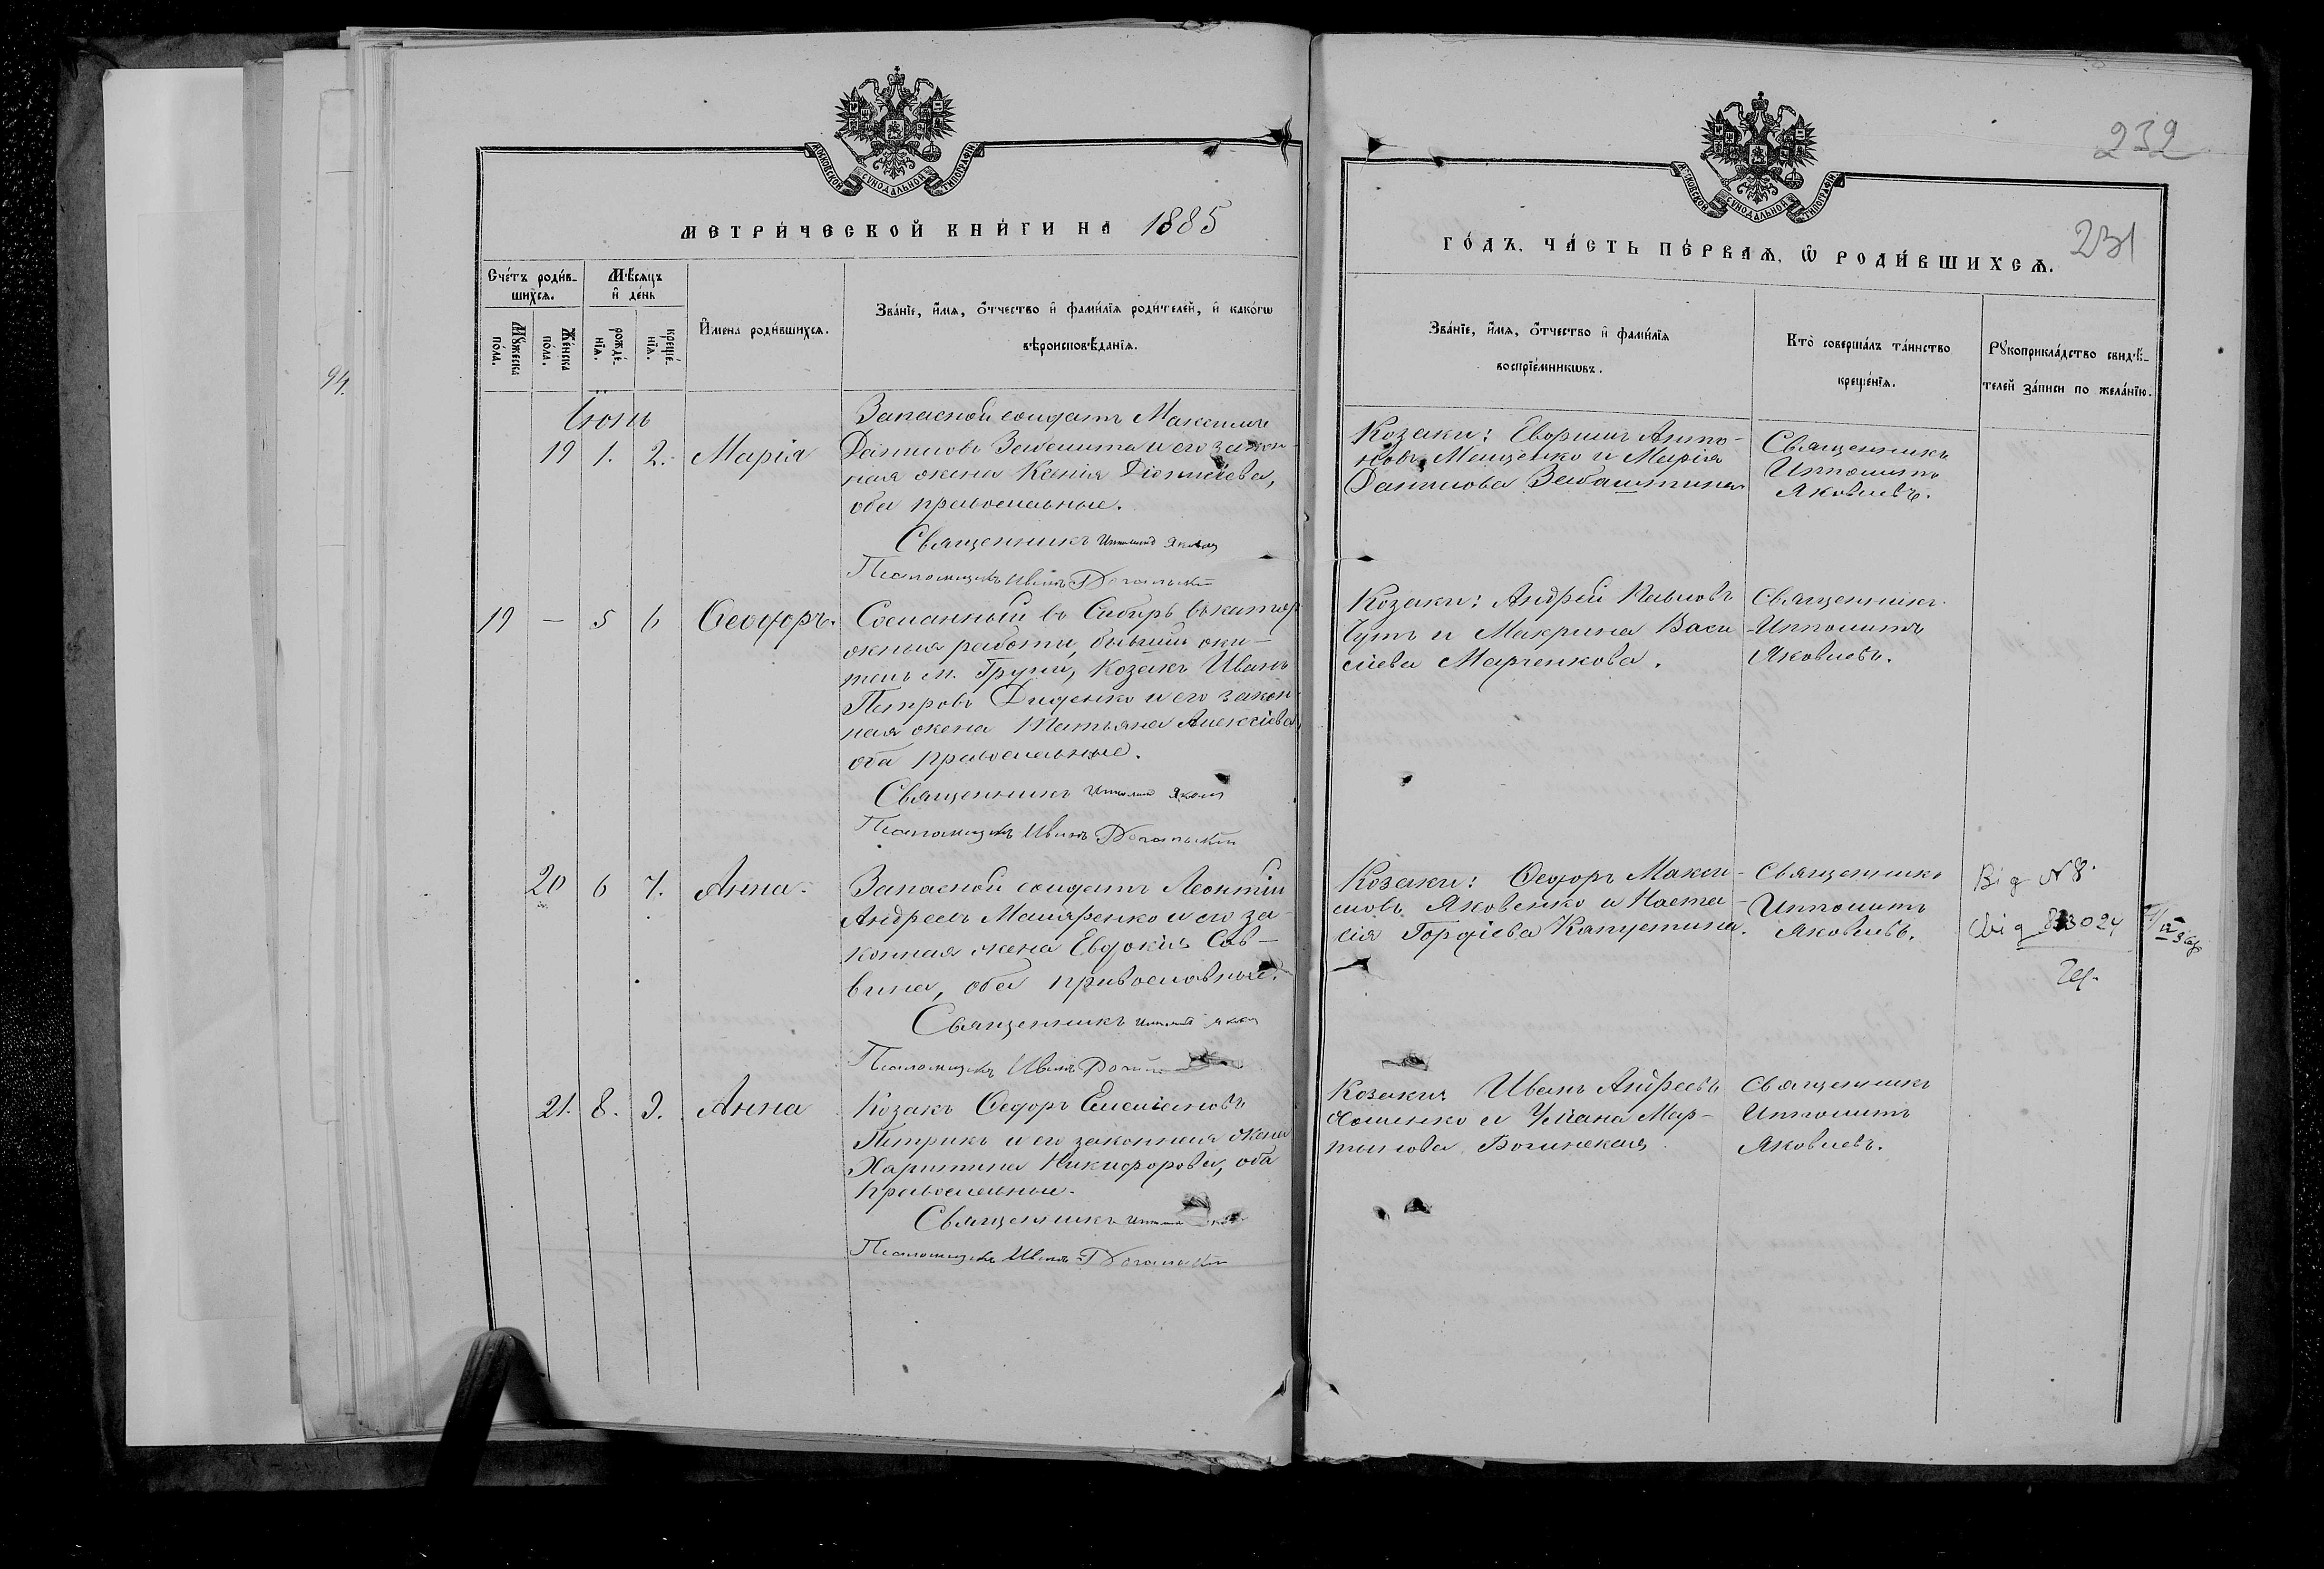 94.
МОСКОВСКОЙ СѴНОДАЛЬНОЙ ТИПОГРАФІИ
МЕТРИ́ЧЕСКОЙ КНИ́ГИ НА 1885
Сче́тъ роди́в-
шихся.
Мѣ́сяцъ
и де́нь
Мꙋ́жеска
по́ла.
Же́нска
по́ла.
рожде́-
нїѧ.
креще́-
нїѧ.
И҆мена роди́вшихся.
Зва́нїе, и҆́мѧ, о҆́тчество и҆ фами́лїѧ роди́телей, и҆ како́гѡ
вѣроисповѣ́данїѧ.
Іюнь
19 1. 2. Марія
Запасной солдатъ Максимъ
Даниловъ и его закон-
ная жена Ксенія Діонисіева,
оба православные.
Священникъ Ипполитъ Яковлев
Псаломщикъ Иванъ
19 — 5 6 Ѳеодоръ.
Сосланный въ Сибирь въ катор-
жныя работы, бывшій жи-
тель м. Груни, Козакъ Иванъ
Петровъ Диденко и его закон-
ная жена Татьяна Алексіева,
оба православные.
Священникъ Ипполитъ Яковлев
Псаломщикъ Иванъ
20 6 7. Анна.
Запасной солдатъ Леонтій
Андреевъ и его за-
конная жена Евдокія Сав-
вина, оба православные.
Священникъ Ипполитъ Яковлев
Псаломщикъ Иванъ
21. 8. 9. Анна
Козакъ Ѳедоръ Емеліановъ
Петрикъ и его законная жена
Харитина Никифорова, оба
православные.
Священникъ
Псаломщикъ Иванъ
232
231
МОСКОВСКОЙ СѴНОДАЛЬНОЙ ТИПОГРАФІИ
ГО́ДЪ, ЧА́СТЬ ПЕ́РВАѦ, Ѽ РОДИ́ВШИХСѦ.
Зва́нїе, и҆́мѧ, о҆́тчество и҆ фами́лїѧ
воспрїе́мникѡвъ.
Кто̀ соверша́лъ та́инство
креще́нїѧ.
Рꙋкоприкла́дство свидѣ́-
телей за́писи по жела́нїю.
Козаки: Анто-
новъ Мищенко и Марія
Данилова
Священникъ
Ипполитъ
Яковлевъ.
Козаки: Андрей Павловъ
и Макрина Васи-
ліева Марченкова.
Священникъ
Ипполитъ
Яковлевъ.
Козаки: Ѳедоръ Макси-
мовъ Яковенко и Наста-
сія Гордіева Капустина.
Священникъ
Ипполитъ
Яковлевъ.
Від N 8.
Козаки Иванъ Андреевъ
и Уліана Мар-
тинова
Священникъ
Ипполитъ
Яковлевъ.